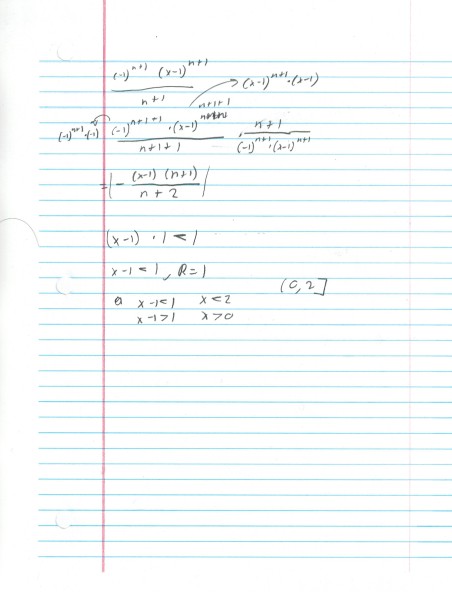 (-1)^{n+1} (x-1)^{n+1} / n+1
→ (x-1)^{n+1} · (x-1)
(-1)^{n+1} · (-1)
(-1)^{n+1+1} · (x-1)^{n+1+1} / n+1+1 · n+1 / (-1)^{n+1} · (x-1)^{n+1}
= | - (x-1) (n+1) / n+2 |
(x-1) · 1 < 1
x-1 < 1, R=1
x-1<1 x<2
x-1>1 x>0
(0, 2]